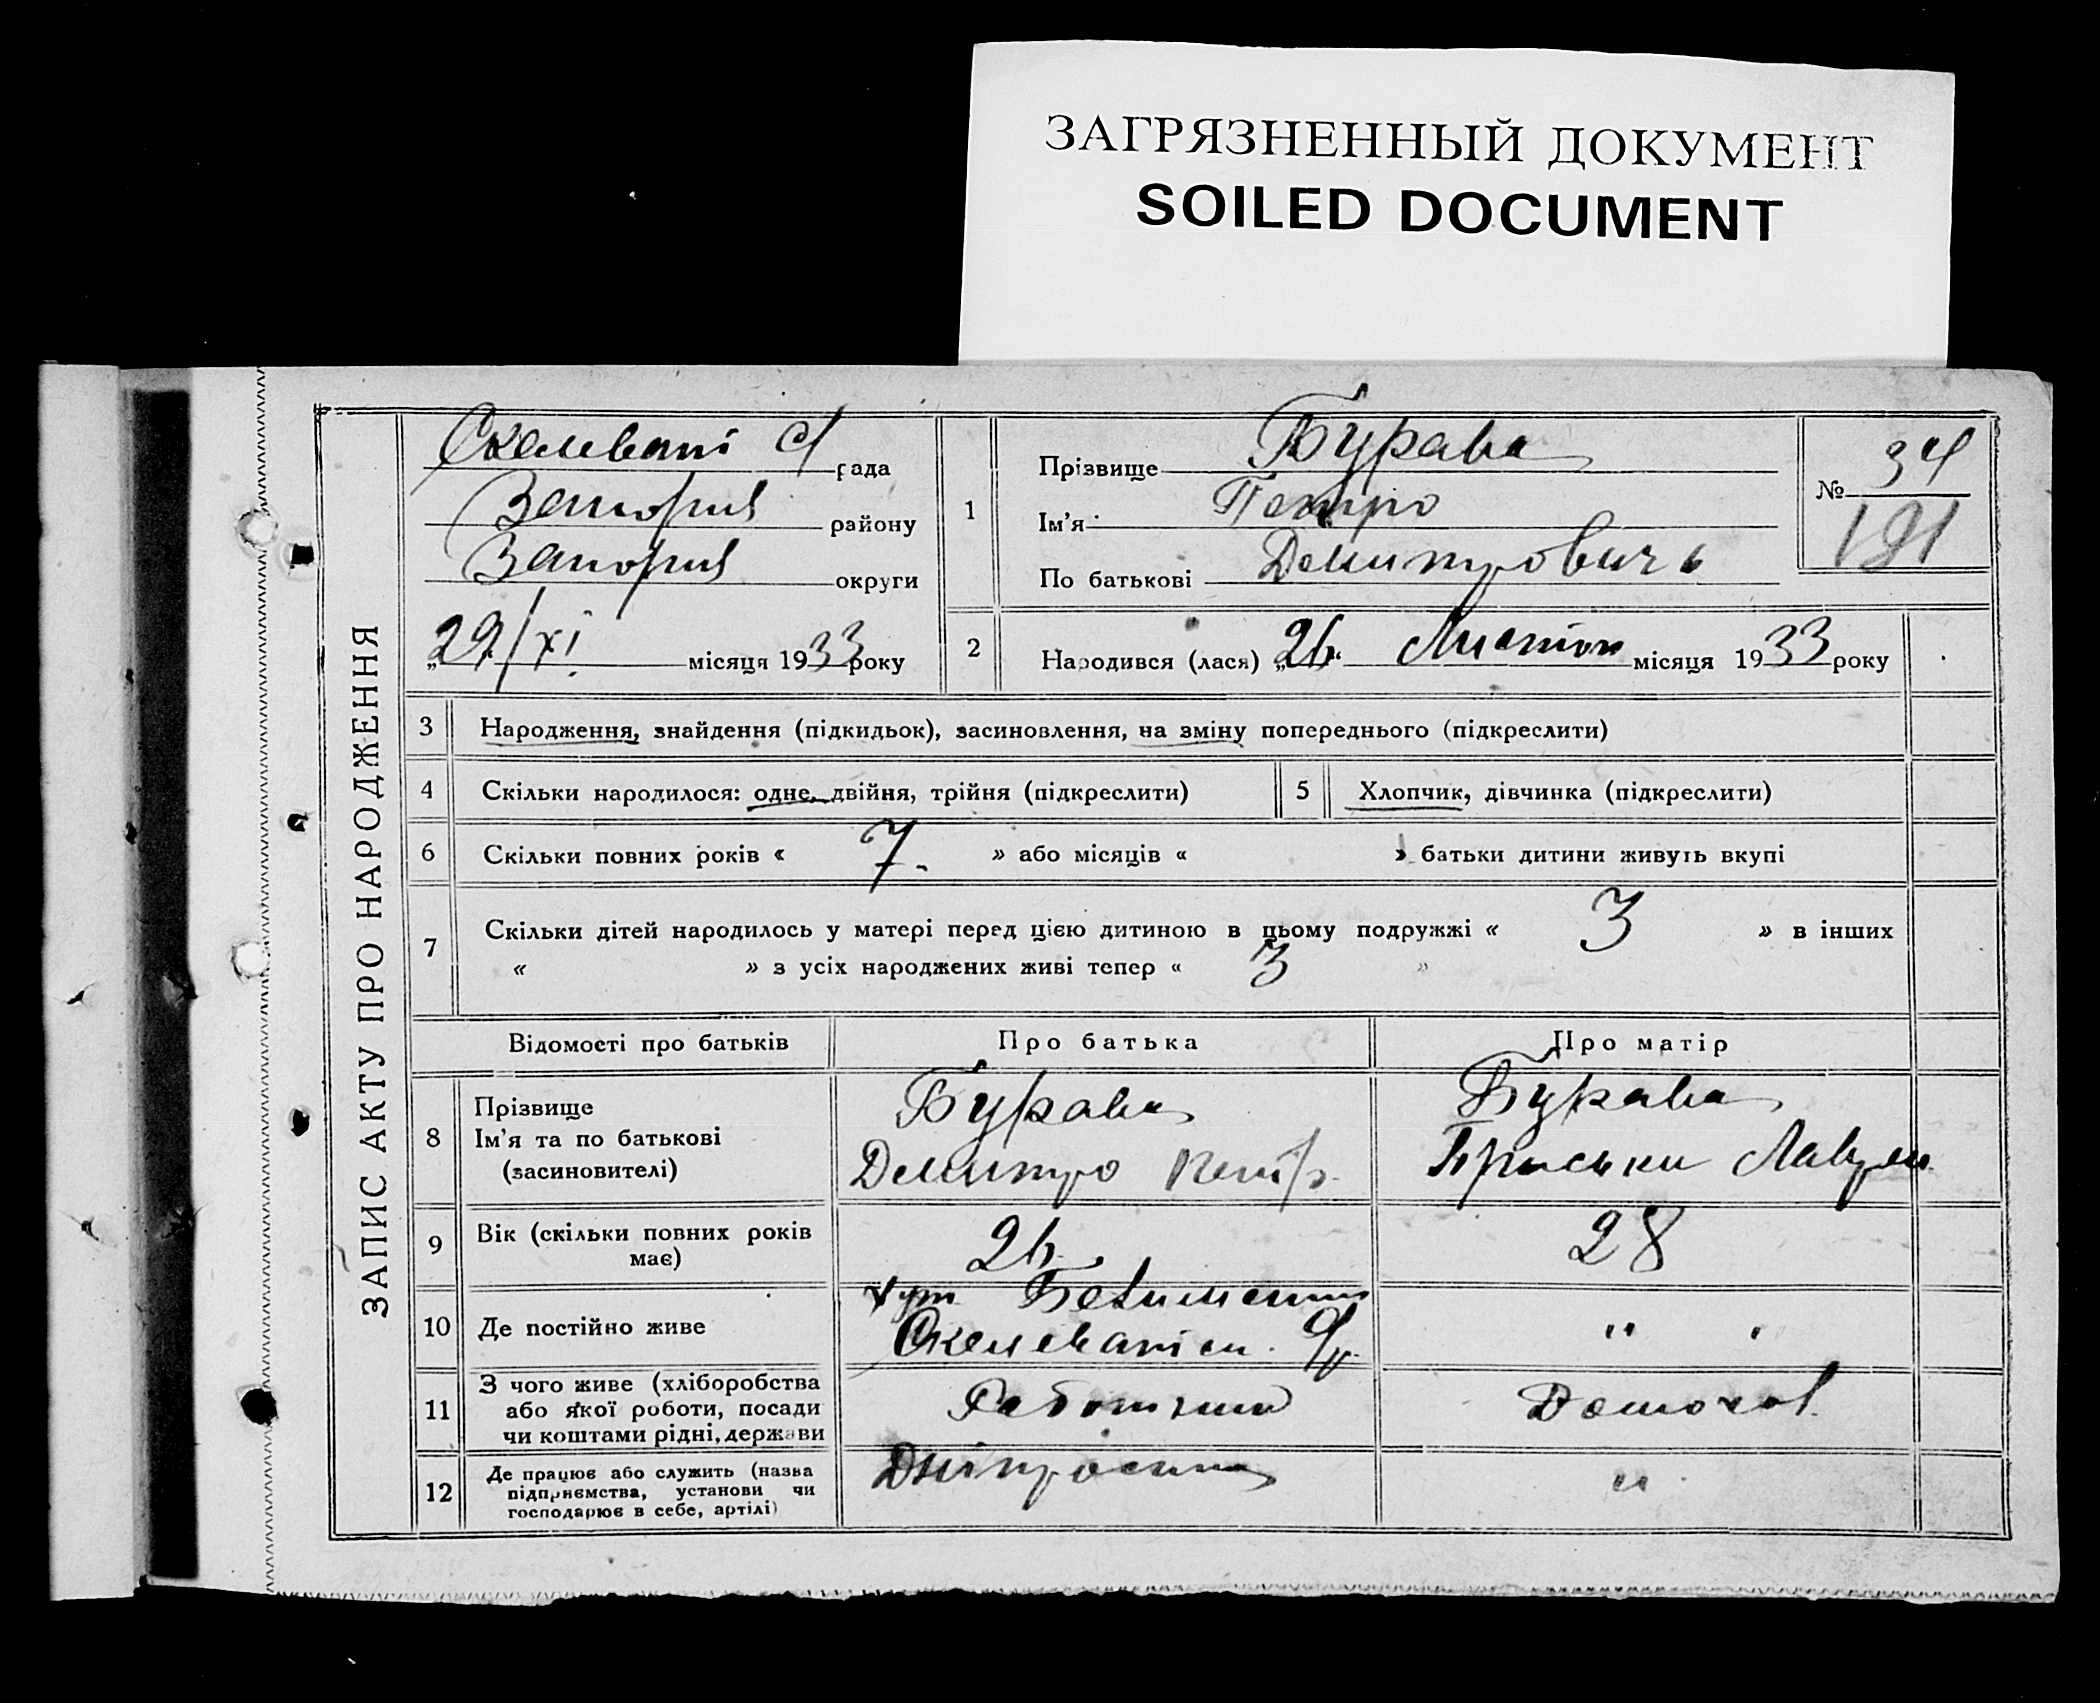 ЗАГРЯЗНЕННЫЙ ДОКУМЕНТ
SOILED DOCUMENT
ЗАПИС АКТУ ПРО НАРОДЖЕННЯ
рада
району
округи
„29/XI місяця 1933 року
1
Прізвище Бурава
Ім'я Петро
По батькові Демитровичь
№ 34
191
2
Народився (лася) „ “ Листоп місяця 1933 року
3 Народження, знайдення (підкидьок), засиновлення, на зміну попереднього (підкреслити)
4 Скільки народилося: одне, двійня, трійня (підкреслити)
5 Хлопчик, дівчинка (підкреслити)
6 Скільки повних років « 7. » або місяців « » батьки дитини живуть вкупі
7 Скільки дітей народилось у матері перед цією дитиною в цьому подружжі « 3 » в інших
« » з усіх народжених живі тепер « 3 »
Відомості про батьків
Про батька
Про матір
8
Прізвище
Ім'я та по батькові
(засиновителі)
Бурава
Демитро Петр.
Бурава
9
Вік (скільки повних років
має)
28
10 Де постійно живе
хут.
" "
11
З чого живе (хліборобства
або якої роботи, посади
чи коштами рідні, держави
Домохов.
12
Де працює або служить (назва
підприємства, установи чи
господарює в себе, артілі)
"